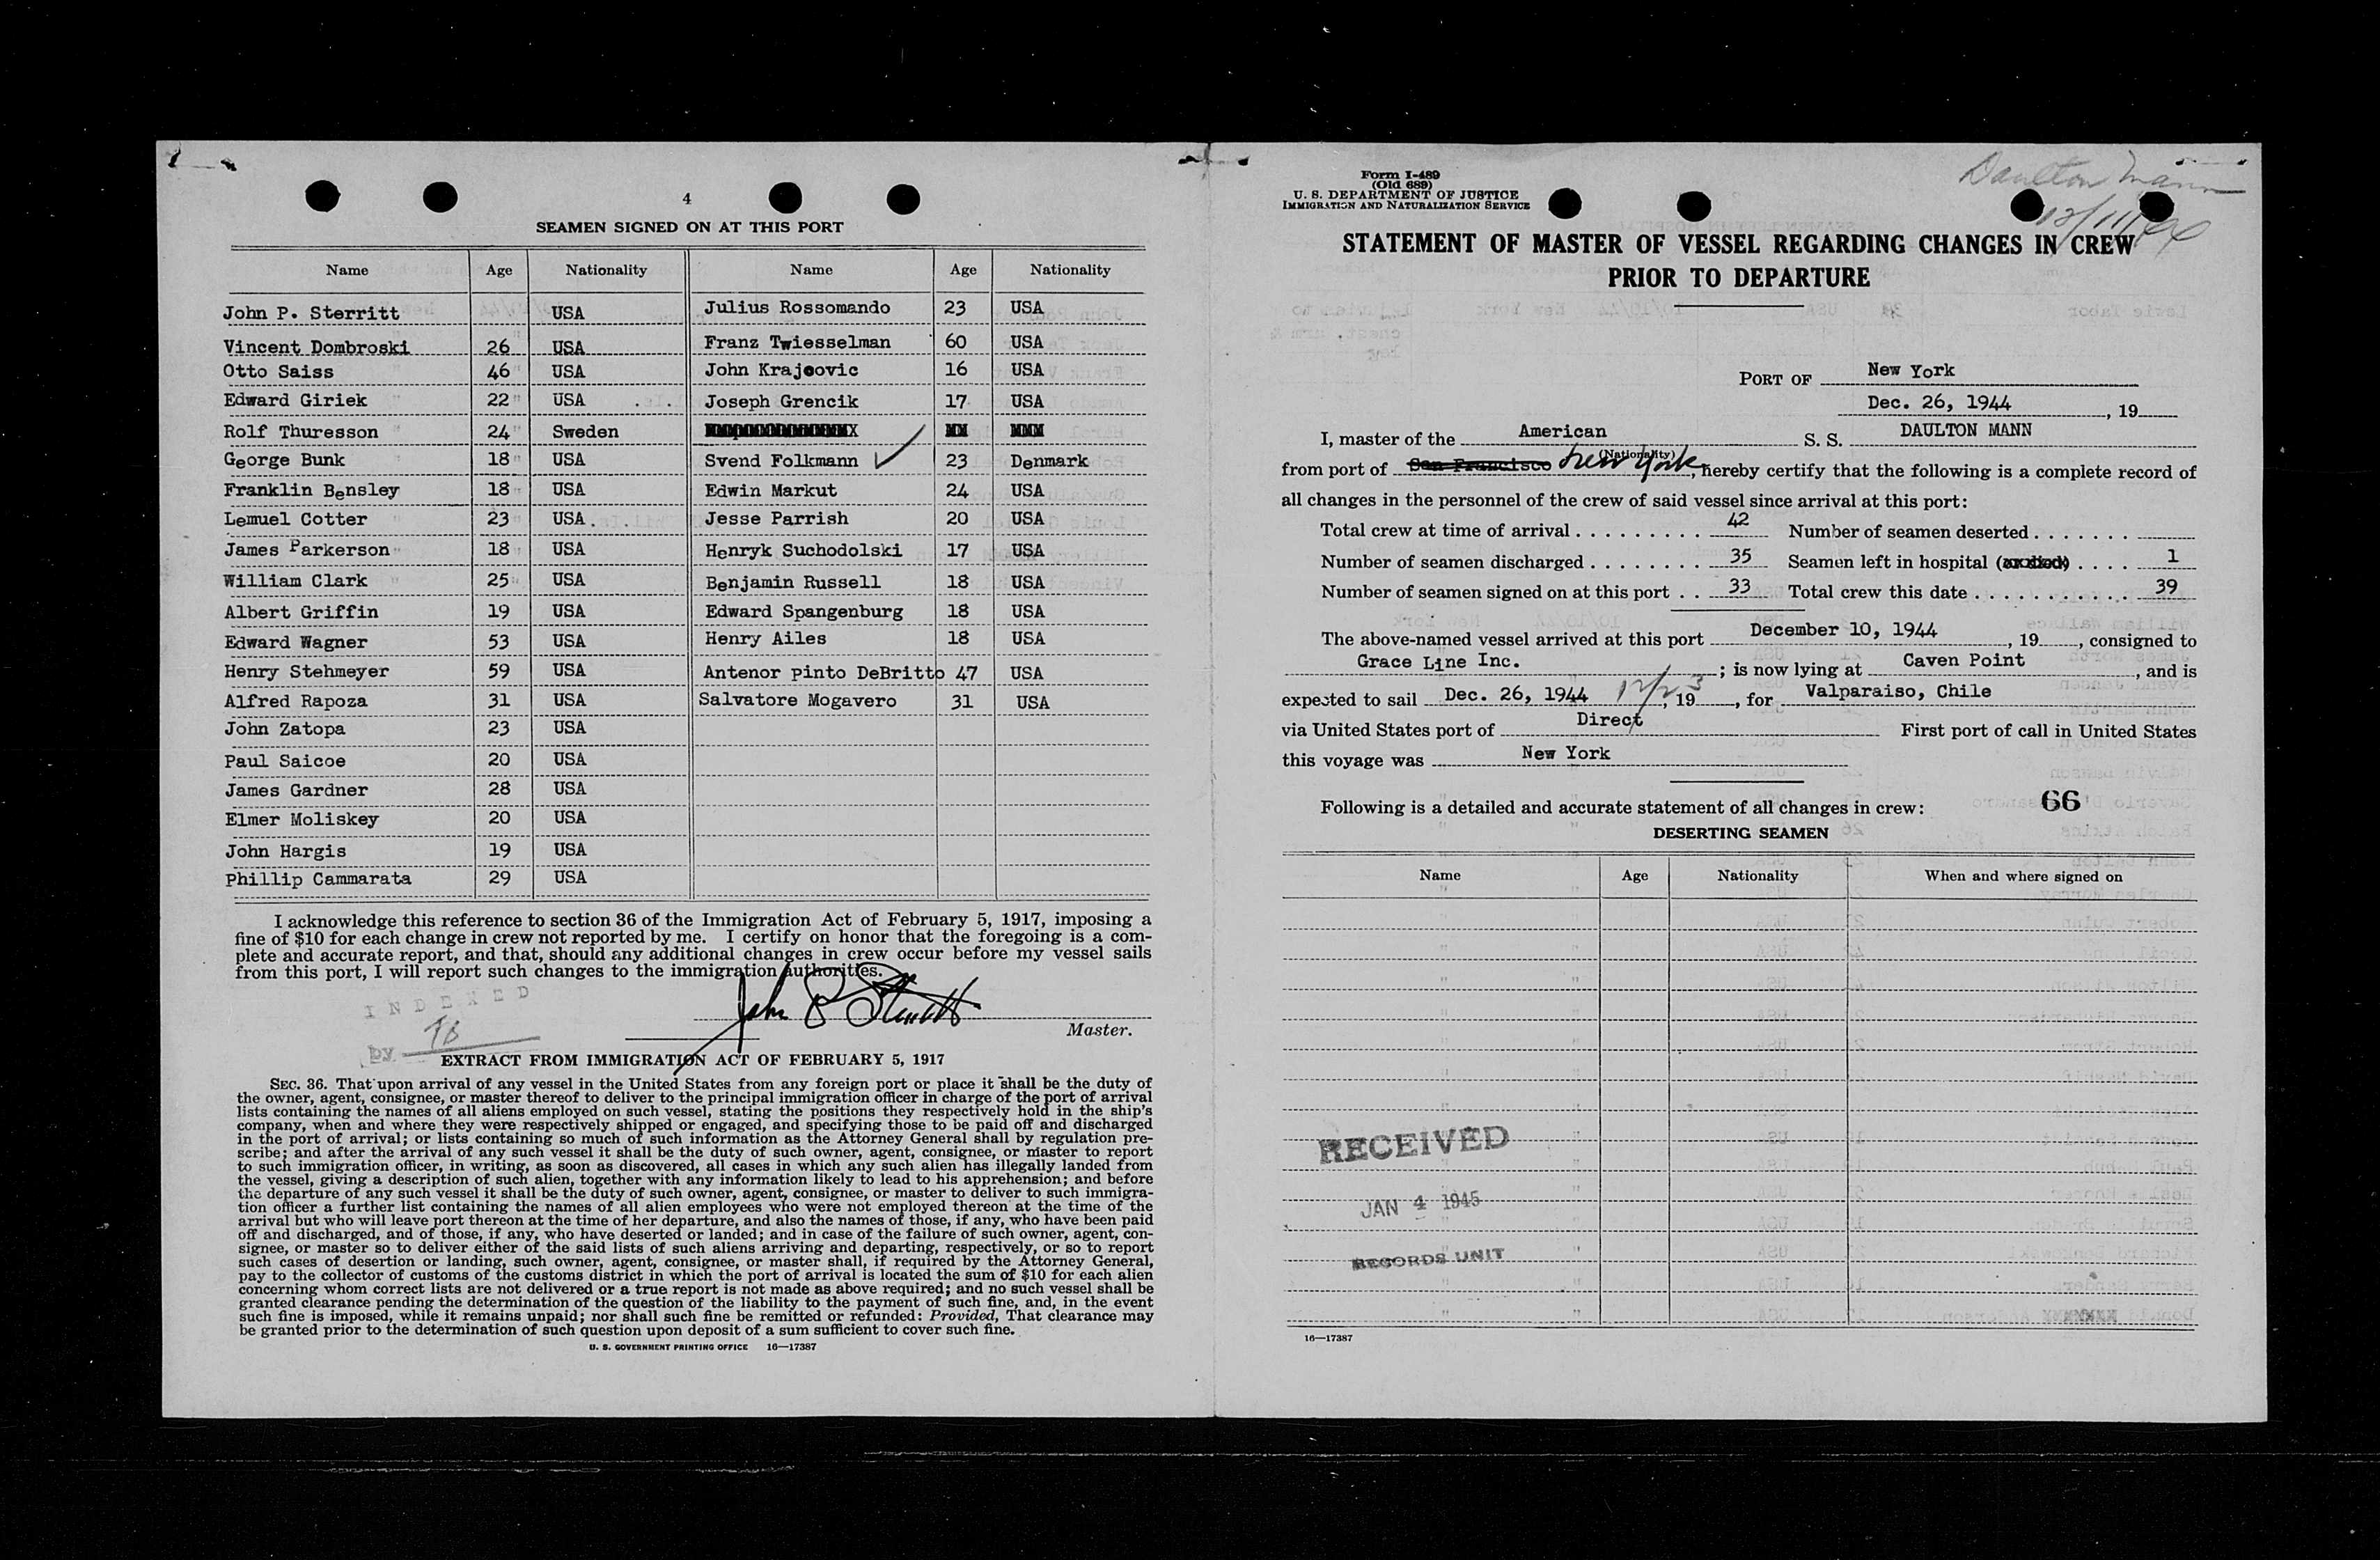 4
SEAMEN SIGNED ON AT THIS PORT
Name Age Nationality Name Age Nationality
John P. Sterritt USA Julius Rossomando 23 USA
Vincent Dombroski 26 USA Franz Twiesselman 60 USA
Otto Saiss 46 USA John Krajcovic 16 USA
Edward Giriek 22 USA Joseph Grencik 17 USA
Rolf Thuresson 24 Sweden
George Bunk 18 USA Svend Folkmann 23 Denmark
Franklin Bensley 18 USA Edwin Markut 24 USA
Lemuel Cotter 23 USA. Jesse Parrish 20 USA
James Parkerson 18 USA Henryk Suchodolski 17 USA
William Clark 25 USA Benjamin Russell 18 USA
Albert Griffin 19 USA Edward Spangenburg 18 USA
Edward Wagner 53 USA Henry Ailes 18 USA
Henry Stehmeyer 59 USA Antenor pinto DeBritto 47 USA
Alfred Rapoza 31 USA Salvatore Mogavero 31 USA
John Zatopa 23 USA
Paul Saicoe 20 USA
James Gardner 28 USA
Elmer Moliskey 20 USA
John Hargis 19 USA
Phillip Cammarata 29 USA
I acknowledge this reference to section 36 of the Immigration Act of February 5, 1917, imposing a
fine of $10 for each change in crew not reported by me. I certify on honor that the foregoing is a com-
plete and accurate report, and that, should any additional changes in crew occur before my vessel sails
from this port, I will report such changes to the immigration authorities.
INDEXED
by
John P Sterritt
Master.
EXTRACT FROM IMMIGRATION ACT OF FEBRUARY 5, 1917
SEC. 36. That upon arrival of any vessel in the United States from any foreign port or place it shall be the duty of
the owner, agent, consignee, or master thereof to deliver to the principal immigration officer in charge of the port of arrival
lists containing the names of all aliens employed on such vessel, stating the positions they respectively hold in the ship's
company, when and where they were respectively shipped or engaged, and specifying those to be paid off and discharged
in the port of arrival; or lists containing so much of such information as the Attorney General shall by regulation pre-
scribe; and after the arrival of any such vessel it shall be the duty of such owner, agent, consignee, or master to report
to such immigration officer, in writing, as soon as discovered, all cases in which any such alien has illegally landed from
the vessel, giving a description of such alien, together with any information likely to lead to his apprehension; and before
the departure of any such vessel it shall be the duty of such owner, agent, consignee, or master to deliver to such immigra-
tion officer a further list containing the names of all alien employees who were not employed thereon at the time of the
arrival but who will leave port thereon at the time of her departure, and also the names of those, if any, who have been paid
off and discharged, and of those, if any, who have deserted or landed; and in case of the failure of such owner, agent, con-
signee, or master so to deliver either of the said lists of such aliens arriving and departing, respectively, or so to report
such cases of desertion or landing, such owner, agent, consignee, or master shall, if required by the Attorney General,
pay to the collector of customs of the customs district in which the port of arrival is located the sum of $10 for each alien
concerning whom correct lists are not delivered or a true report is not made as above required; and no such vessel shall be
granted clearance pending the determination of the question of the liability to the payment of such fine, and, in the event
such fine is imposed, while it remains unpaid; nor shall such fine be remitted or refunded: Provided, That clearance may
be granted prior to the determination of such question upon deposit of a sum sufficient to cover such fine.
U. S. GOVERNMENT PRINTING OFFICE 16—17387
Form I-489
(Old 689)
U. S. DEPARTMENT OF JUSTICE
IMMIGRATION AND NATURALIZATION SERVICE
Daulton Mann
12/11/44
STATEMENT OF MASTER OF VESSEL REGARDING CHANGES IN CREW
PRIOR TO DEPARTURE
PORT OF New York
Dec. 26, 1944, 19
I, master of the American S. S. DAULTON MANN
(Nationality)
from port of San Francisco New York, hereby certify that the following is a complete record of
all changes in the personnel of the crew of said vessel since arrival at this port:
Total crew at time of arrival 42 Number of seamen deserted
Number of seamen discharged 35 Seamen left in hospital (or died) 1
Number of seamen signed on at this port 33 Total crew this date 39
The above-named vessel arrived at this port December 10, 1944, 19, consigned to
Grace Line Inc.; is now lying at Caven Point, and is
expected to sail Dec. 26, 1944 12/23, 19, for Valparaiso, Chile
via United States port of Direct First port of call in United States
this voyage was New York
Following is a detailed and accurate statement of all changes in crew: 66
DESERTING SEAMEN
Name Age Nationality When and where signed on
RECEIVED
JAN 4 1945
RECORDS UNIT
16—17387